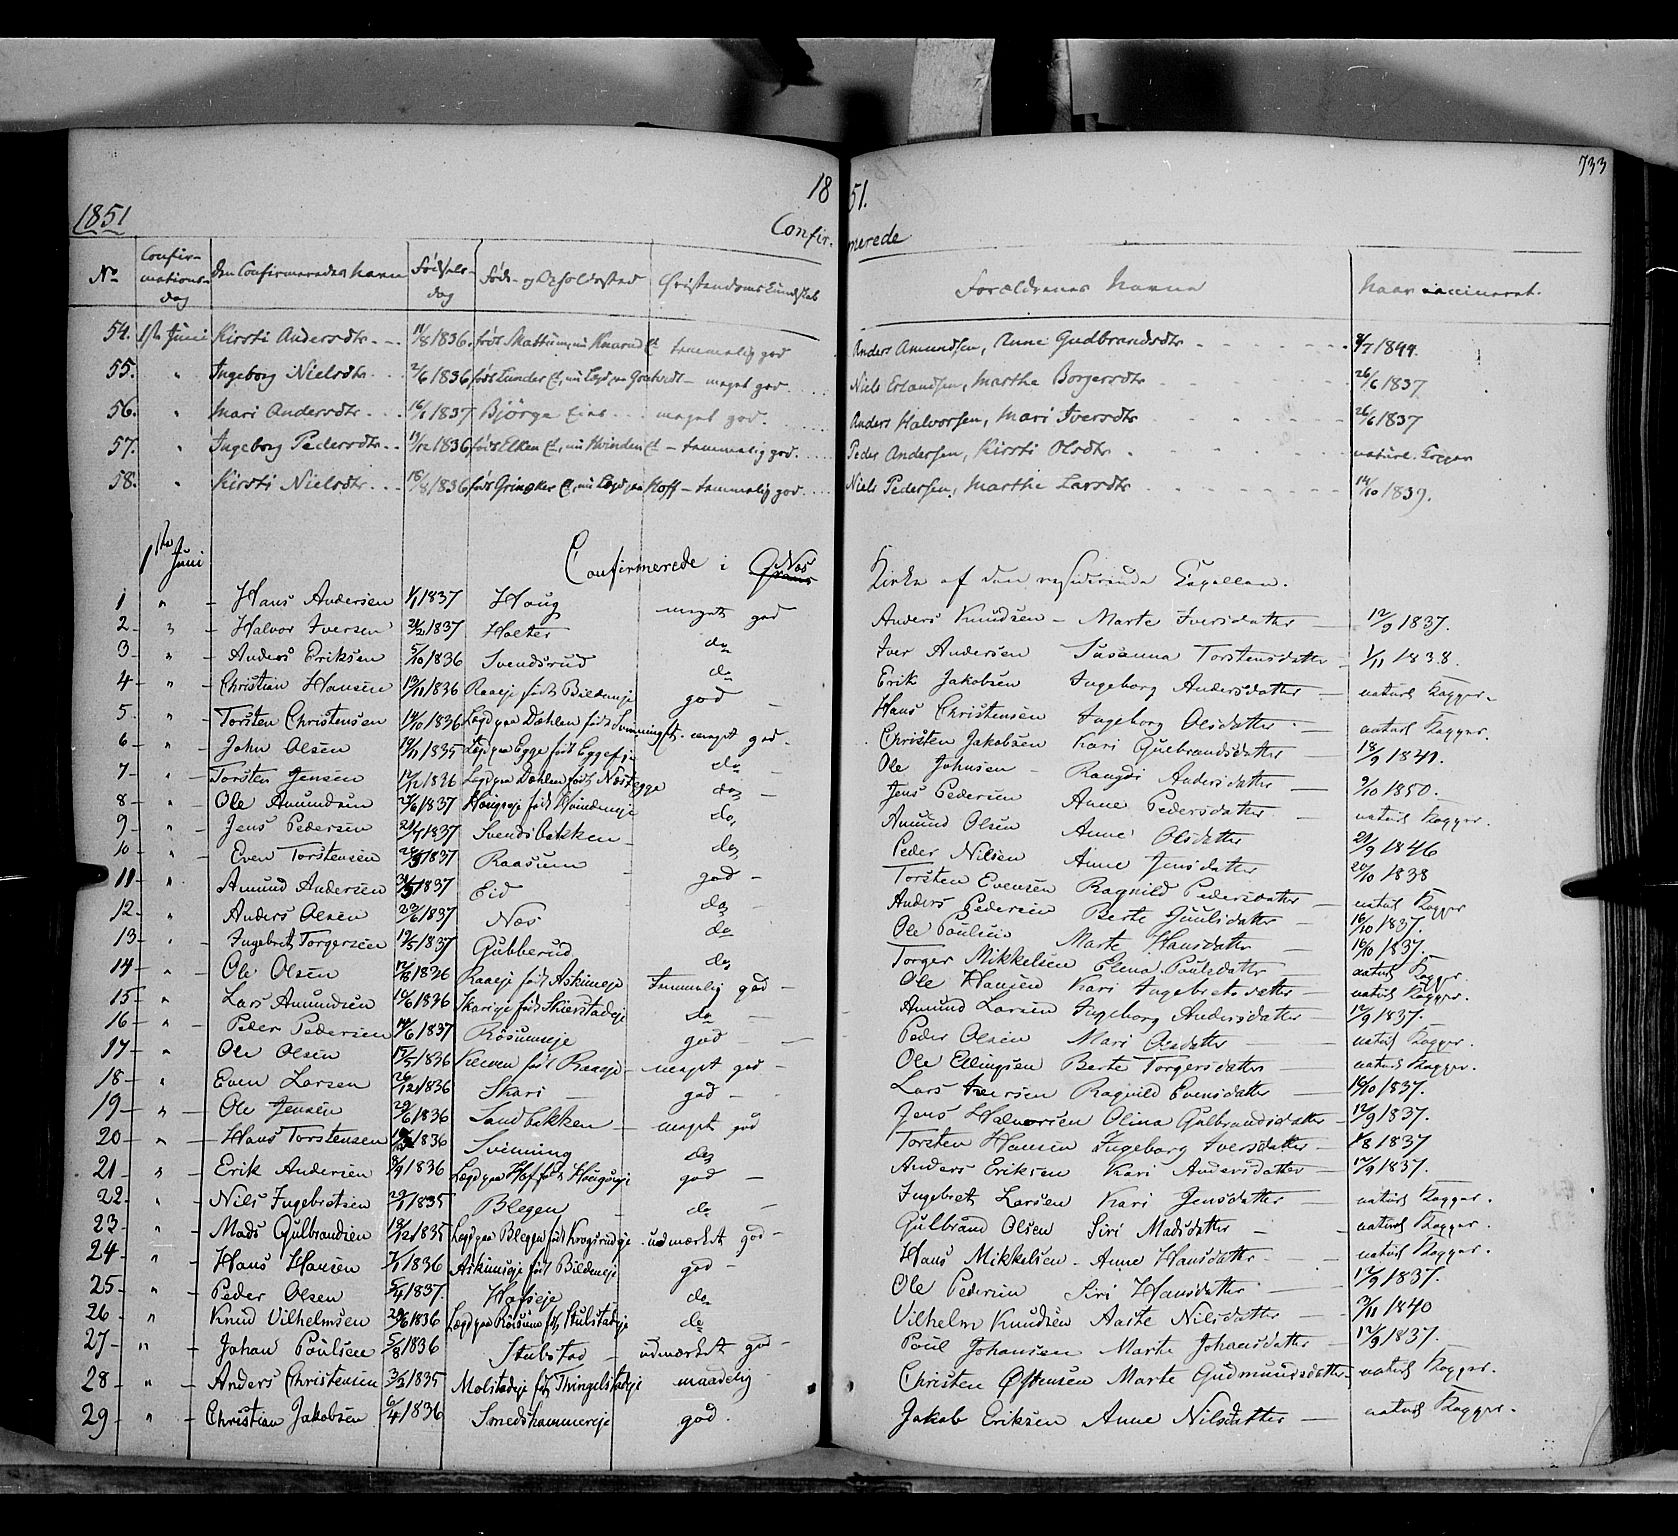 733
1851
18 51.
Confir- merede
No Confir-mations-dag den Confirmeredes Navn Fødsels-dag Føde- og Opholdssted Christendoms Kundskab Forældrenes Navne Naar vaccineret.
54. 1ste Juni Kirsti Andersdtr. 11/8 1836. født Skattum, nu Knarud tammelig god Anders Amundsen, Anne Gudbrandsdtr 8/7 1844.
55. " Ingeborg Nielsdtr 2/6 1836 født Lunder meget god Niels Erlandsen, Marthe Borgersdtr 26/6 1837.
56. " Mari Andersdtr 16/1 1837 Bjørge Eie meget god. Anders Halvorsen, Mari Iversdtr 26/6 1837
57. " Ingeborg Pedersdtr 19/12 1836 født Elken E, nu Hvinden E tammelig god. Peder Andersen, Kirsti Olsdtr naturl. Kopper
58. " Kirsti Nielsdtr 1836 født Grinaker E, nu Lægd paa Hoff tammelig god. Niels Pedersen, Marthe Larsdtr 14/10 1839.
1ste Juni Confirmerede i Næs Kirke af den residerende Capellan.
1 " Hans Andersen 1/1 1837 Haug meget god Anders Knudsen Marte Iversdatter 12/9 1837.
2 " Halvor Iversen 24/2 1837 Holter do Iver Andersen Susanna Torstensdatter 1/11 1838.
3 " Anders Eriksen 5/10 1836 Svendsrud do Erik Jakobsen Ingeborg Andersdatter naturl Kopper
4 " Christian Hansen 13/11 1836 Raaeje født Bildeneje god Hans Christensen Ingeborg Olsdatter naturl Kopper.
5 " Torsten Christensen 14/10 1836 Lægd paa Dæhlen født meget god Christen Jakobsen Kari Gulbrandsdatter 18/9 1841.
6 " John Olsen 19/11 1835 Lægd paa Egge født Eggeeje do Ole Johnsen Rangdi Andersdatter 2/10 1850.
7 " Torsten Jensen 12/12 1836 Lægd paa Dæhlen født Næsegge do Jens Pedersen Anne Pedersdatter naturl Kopper.
8 " Ole Amundsen 27/6 1837 Hougseje født Hvindeneje do Amund Olsen Anne Olsdatter 21/9 1846
9 " Jens Pedersen 21/7 1837 Svendsbakken do Peder Nilsen Anne Jensdatter 20/10 1838
10 " Even Torstensen 1837 Raasum god Torsten Evensen Ragnild Pedersdatter naturl Kopper
11 " Amund Andersen 1837 Eid do Anders Pedersen Berte Guulsdatter 16/10 1837.
12 " Anders Olsen 22/6 1837 Næs do Ole Poulsen Marte Hansdatter 10/10 1837.
13 " Ingebret Torgersen 19/5 1837 Gubberud do Torger Mikkelsen Elena Poulsdatter naturl Kopper
14 " Ole Olsen 1836 Raaeje født Askimeje tammelig god Ole Hansen Kari Ingebretsdatter naturl Kopper.
15 " Lars Amundsen 10/6 1836 Skarieje født Skierstadeje do Amund Larsen Ingeborg Andersdatter 12/9 1837.
16 " Peder Pedersen 14/6 1837 Røsumeje god Peder Olsen Mari Olsdatter naturl Kopper.
17 " Ole Olsen 17/5 1836 født Raaeje meget god Ole Ellingsen Berte Torgersdatter naturl Kopper.
18 " Even Larsen 26/12 1836 Skari god Lars Iversen Ragnild Evensdatter 10/10 1837.
19 " Ole Jensen 29/6 1836 Sandbakken meget god Jens Halvorsen Olina Gulbrandsdatter 12/9 1837.
20 " Hans Torstensen 1836 Svinning do Torsten Hansen Ingeborg Iversdatter 1/8 1837
21 " Erik Andersen 8/9 1836 Lægd paa Hof født Hougseje god Anders Eriksen Kari Andersdatter 12/9 1837.
22 " Nils Ingebretsen 29/1 1835 Blegen do Ingebret Larsen Kari Jensdatter naturl Kopper.
23 " Mads Gulbrandsen 18/12 1835 Lægd paa Blegen født Krogsrudeje udmærket god Gulbrand Olsen Siri Madsdatter naturl Kopper.
24 " Hans Hansen 1/1 1836 Askimseje født Bildeneje god Hans Mikkelsen Anne Hansdatter naturl Kopper.
25 " Peder Olsen 5/4 1837 Hofseje do Ole Pedersen Siri Hansdatter 12/9 1837.
26 " Knud Vilhelmsen 20/6 1836 Lægd paa Røisum født Stulstadeje do Vilhelm Knudsen Aaste Nilsdatter 3/11 1840
27 " Johan Poulsen 5/8 1836 Stubstad udmærket god Poul Johansen Marte Johansdatter 12/9 1837.
28 " Anders Christensen 3/3 1835 Molstadeje født Thingelstadeje maadelig Christen Østensen Marte Gudmundsdatter naturl Kopper.
29 " Christian Jakobsen 6/4 1836 Smedshammereje god. Jakob Eriksen Anne Nilsdatter naturl Kopper.